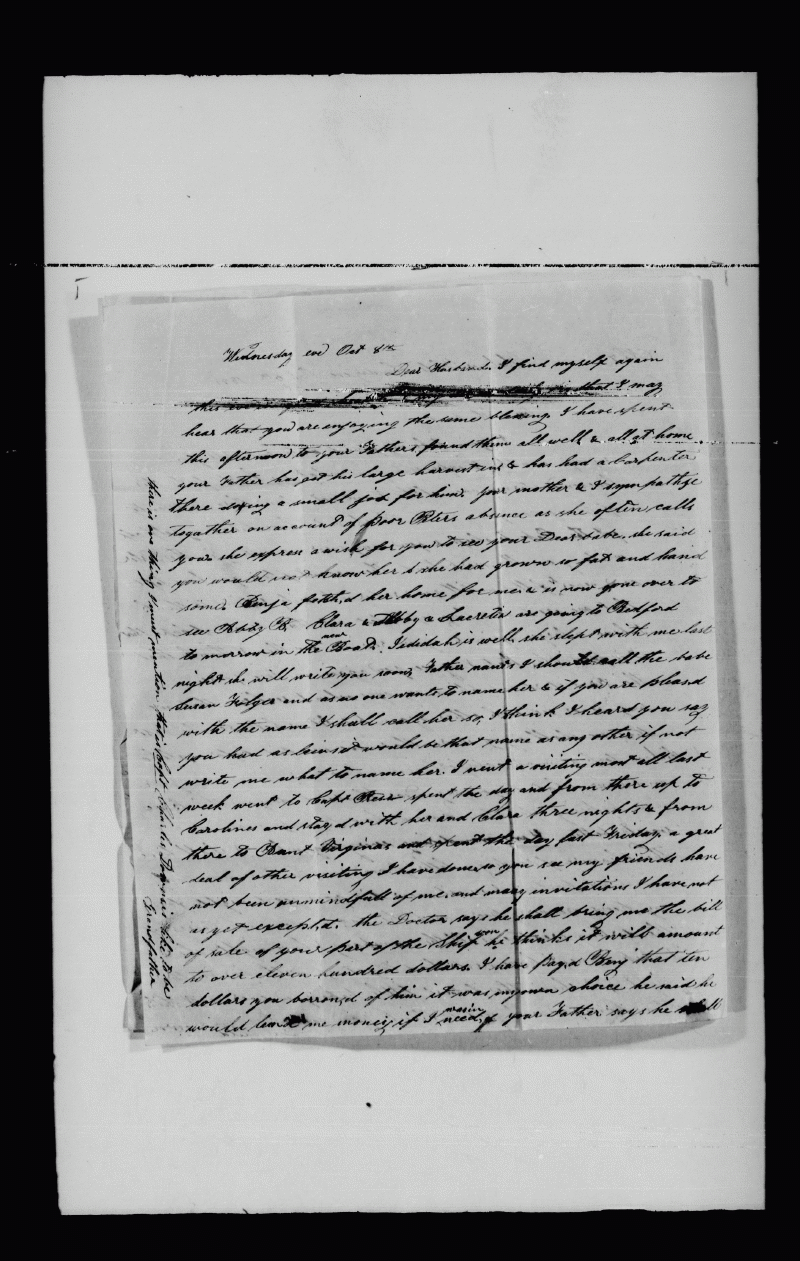 Wednesday eve Oct 8th
Dear Husband. I find myself again
this that I may
hear that you are enjoying the same blessing. I have spent
this afternoon to your Fathers found them all well & all at home.
your Father has got his large harvest in & has had a Carpenter
there doing a small job for him. your mother & I sympathize
together on account of poor Peters absence as she often calls
you. she express a wish for you to see your Dear babe. she said
you would not know her she had grown so fat and hand
some. Benja fetch,d her home for me & is now gone over to
see Abby B. Clara & Abby & Lucretia are going to Bedford
to morrow in the new Boat. Jedidah is well, she slept with me last
night she will write you soon, Father wants I should call the babe
Susan Folger and as no one wants to name her & if you are pleasd
with the name I shall call her so, I think I heard you say
you had as leave it would be that name as any other if not
write me what to name her. I went a visiting most all last
week went to Capt spent the day and from there up to
Carolines and stayd with her and Clara three nights & from
there to Aunt Virginias and spent the day last Friday, a great
deal of other visiting I have done, so you see my friends have
not been unmindfull of me. and many invitations I have not
as yet except,d. the Doctor says he shall bring me the bill
of sale of your part of the Ship he thinks it will amount you
to over eleven hundred dollars. I have pay,d Benj that ten
dollars you borrow,d of him it was my own choice he said he
would lend me money if I need,d your Father says he shall
there is one thing I must mention that is Capt Charles like to be
Grandfather